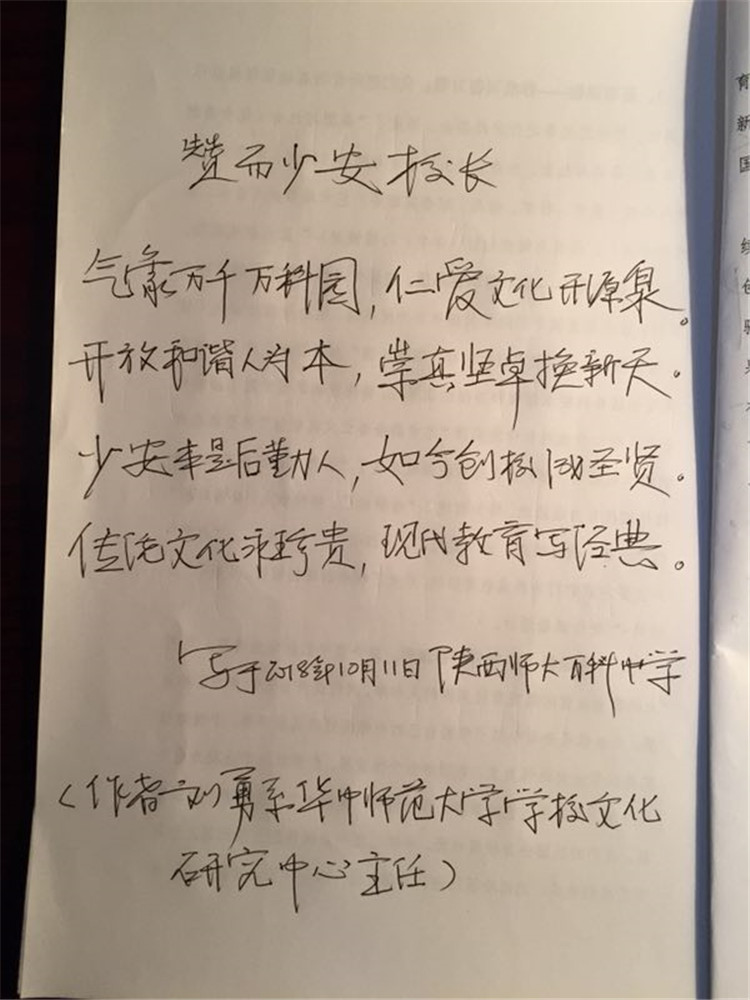 赞而少安校长
气象万千万科园，仁爱文化开源泉。
开放和谐人为本，崇真坚卓换新天。
少安本是后勤人，如今创校圣贤。
传统文化永珍贵，现代教育写经典。
写于2018年10月11日陕西师大万科中学
（作者刘勇系华中师范大学学校文化
研究中心主任）
育
新
国